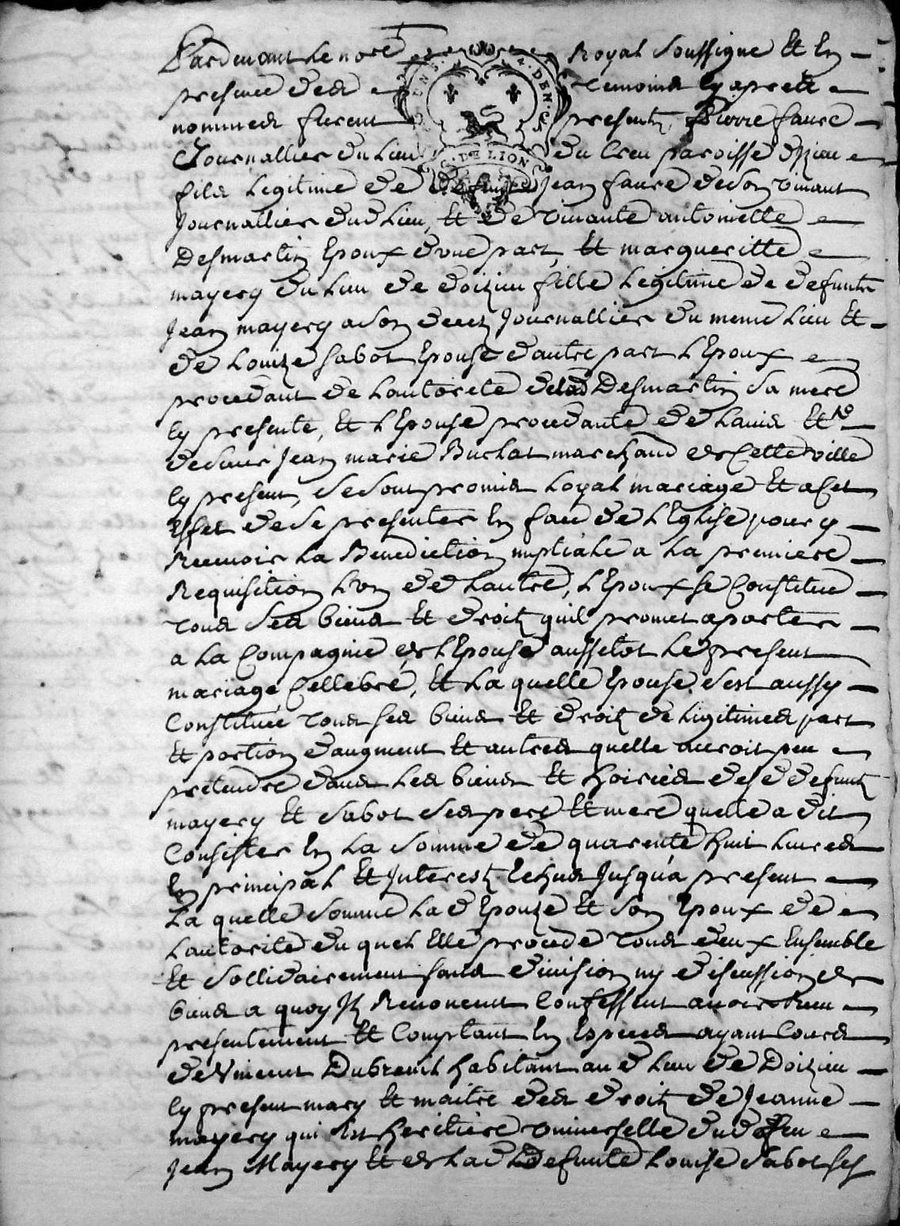 Pardevant Le no.re Royal Soussigné Et En
presence des Temoins Cy apres
nommes furent presents, Pierre faure
Journallier du Lieu du Creu paroisse dizieu
fils Legitime de Jean faure de son vivant
Journallier dud Lieu, Et de vivante antoinette
Desmartin Epoux d'une part, Et margueritte
mayery du Lieu de doizieu fille Legitime de defunts
Jean mayery a son deces Journallier du meme Lieu Et
de Louize Sabot Epouse d'autre part L'Epoux
procedant de Lautorité de lad Desmartin Sa mere
Cy presente, Et L'Epouse procedante de Lavis Et
de Sieur Jean marie Buchat marchand de Cette ville
Cy present, se sont promis Loyal mariage Et a Cet
Effet de se presenter En face de L'Eglise pour y
Recevoir La Benediction nuptiale a La premiere
Requisition L'un de Lautre, L'Epoux se Constitue
Tous Ses biens Et droits quil promet aporter
a La Compagnie de L'Epouse aussitot Le present
mariage Cellebré, Et La quelle Epouse s'est aussy
Constituée Tous Ses biens Et droits de Legitimes part
Et portion d'augment Et autres quelle auroit peu
pretendre dans Les biens Et hoiries desd defunts
mayery Et Sabot Ses pere Et mere quelle a dit
Consister En La Somme de quarente huit Livres
En principal Et Interests Echus Jusqua present
La quelle Somme Lad Epouze Et Son Epoux de
Lautorité du quel Elle procede Tous deux Ensemble
Et Sollidairement Sans division ny discussion de
biens a quoy Ils Renoncent Confessent avoir Receu
presentement Et Comptant En Especes ayant Cours
de Vincent Dubreuil habitant aud Lieu de Doizieu
Cy present mary Et maitre des droits de Jeanne
mayery qui Est heritiere universelle dud feu
Jean Mayery Et de Lad defunte Louise Sabot Ses
GENS. DE LION
4. DEN.